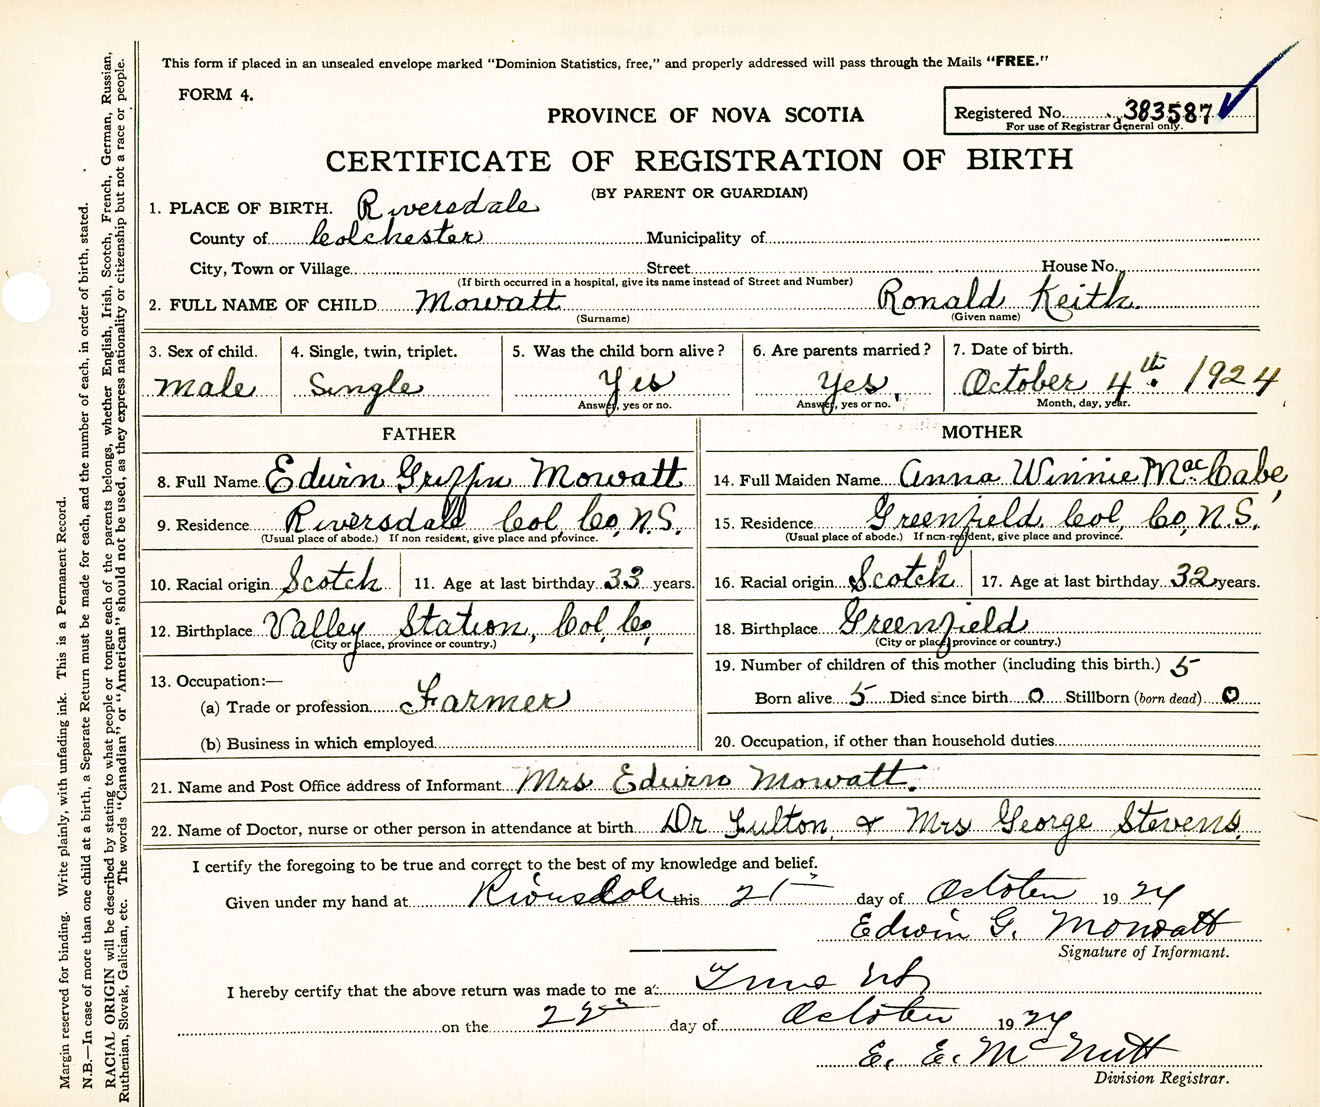 This form if placed in an unsealed envelope marked "Dominion Statistics, free," and properly addressed will pass through the Mails "FREE."
FORM 4.
PROVINCE OF NOVA SCOTIA
Registered No. 383587
For use of Registrar General only.
CERTIFICATE OF REGISTRATION OF BIRTH
(BY PARENT OR GUARDIAN)
1. PLACE OF BIRTH. Riversdale
County of Colchester Municipality of
City, Town or Village Street House No.
(If birth occurred in a hospital, give its name instead of Street and Number)
2. FULL NAME OF CHILD Mowatt Ronald Keith.
(Surname) (Given name)
3. Sex of child. 4. Single, twin, triplet. 5. Was the child born alive? 6. Are parents married? 7. Date of birth.
Male Single Yes Yes. October 4th. 1924
Answer, yes or no. Answer, yes or no. Month, day, year.
FATHER MOTHER
8. Full Name Edwin Griffin Mowatt 14. Full Maiden Name Anna Winnie MacCabe,
9. Residence Riversdale Col, Co, N.S. 15. Residence Greenfield. Col, Co, N.S.
(Usual place of abode.) If non resident, give place and province. (Usual place of abode.) If non-resident, give place and province.
10. Racial origin Scotch 11. Age at last birthday 33 years. 16. Racial origin Scotch 17. Age at last birthday 32 years.
12. Birthplace Valley Station, Col, Co, 18. Birthplace Greenfield
(City or place, province or country.) (City or place, province or country.)
13. Occupation:— 19. Number of children of this mother (including this birth.) 5
(a) Trade or profession Farmer Born alive 5 Died since birth 0 Stillborn (born dead) 0
(b) Business in which employed 20. Occupation, if other than household duties
21. Name and Post Office address of Informant Mrs Edwin Mowatt.
22. Name of Doctor, nurse or other person in attendance at birth Dr Fulton, & Mrs George Stevens.
I certify the foregoing to be true and correct to the best of my knowledge and belief.
Given under my hand at Riversdale this 21st day of October 1924
Edwin G. Mowatt
Signature of Informant.
I hereby certify that the above return was made to me at
on the day of October 1924
E. E. McNutt
Division Registrar.
Margin reserved for binding. Write plainly, with unfading ink. This is a Permanent Record.
N.B.—In case of more than one child at a birth, a Separate Return must be made for each, and the number of each, in order of birth, stated.
RACIAL ORIGIN will be described by stating to what people or tongue each of the parents belongs, whether English, Irish, Scotch, French, German, Russian,
Ruthenian, Slovak, Galician, etc. The words "Canadian" or "American" should not be used, as they express nationality or citizenship but not a race or people.